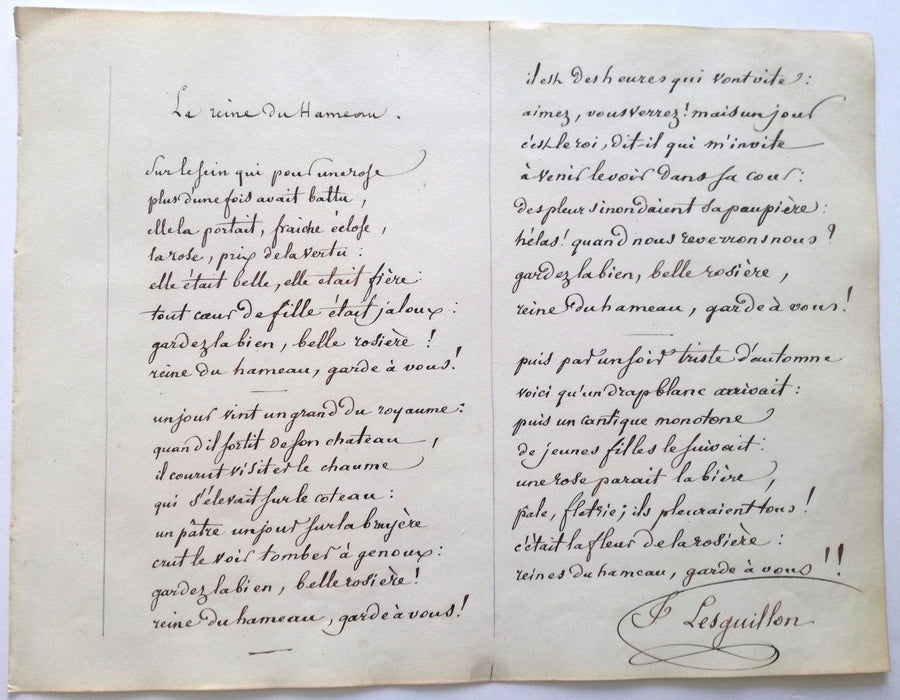 La reine du Hameau.
Sur le sein qui pour une rose
plus d'une fois avait battu,
elle la portait, fraiche éclose,
la rose, prix de la vertu :
elle était belle, elle etait fière :
tout cœur de fille était jaloux :
gardez la bien, belle rosière !
reine du hameau, garde à vous !
un jour vint un grand du royaume :
quand il sortit de son chateau,
il courut visiter le chaume
qui s'élevait sur le coteau :
un pâtre un jour sur la bruyère
crut le voir tomber à genoux :
gardez la bien, belle rosière !
reine du hameau, garde à vous !
il est des heures qui vont vite :
aimez, vous verrez ! mais un jour
c'est le roi, dit-il qui m'invite
à venir le voir dans sa cour :
des pleurs inondaient sa paupière :
hélas ! quand nous reverrons nous ?
gardez la bien, belle rosière,
reine du hameau, garde à vous !
puis par un soir triste d'automne
voici qu'un drap blanc arrivait :
puis un cantique monotone
de jeunes filles le suivait :
une rose parait la bière,
pâle, fletrie ; ils pleuraient tous !
c'était la fleur de la rosière :
reines du hameau, garde à vous !!
J Lesguillon